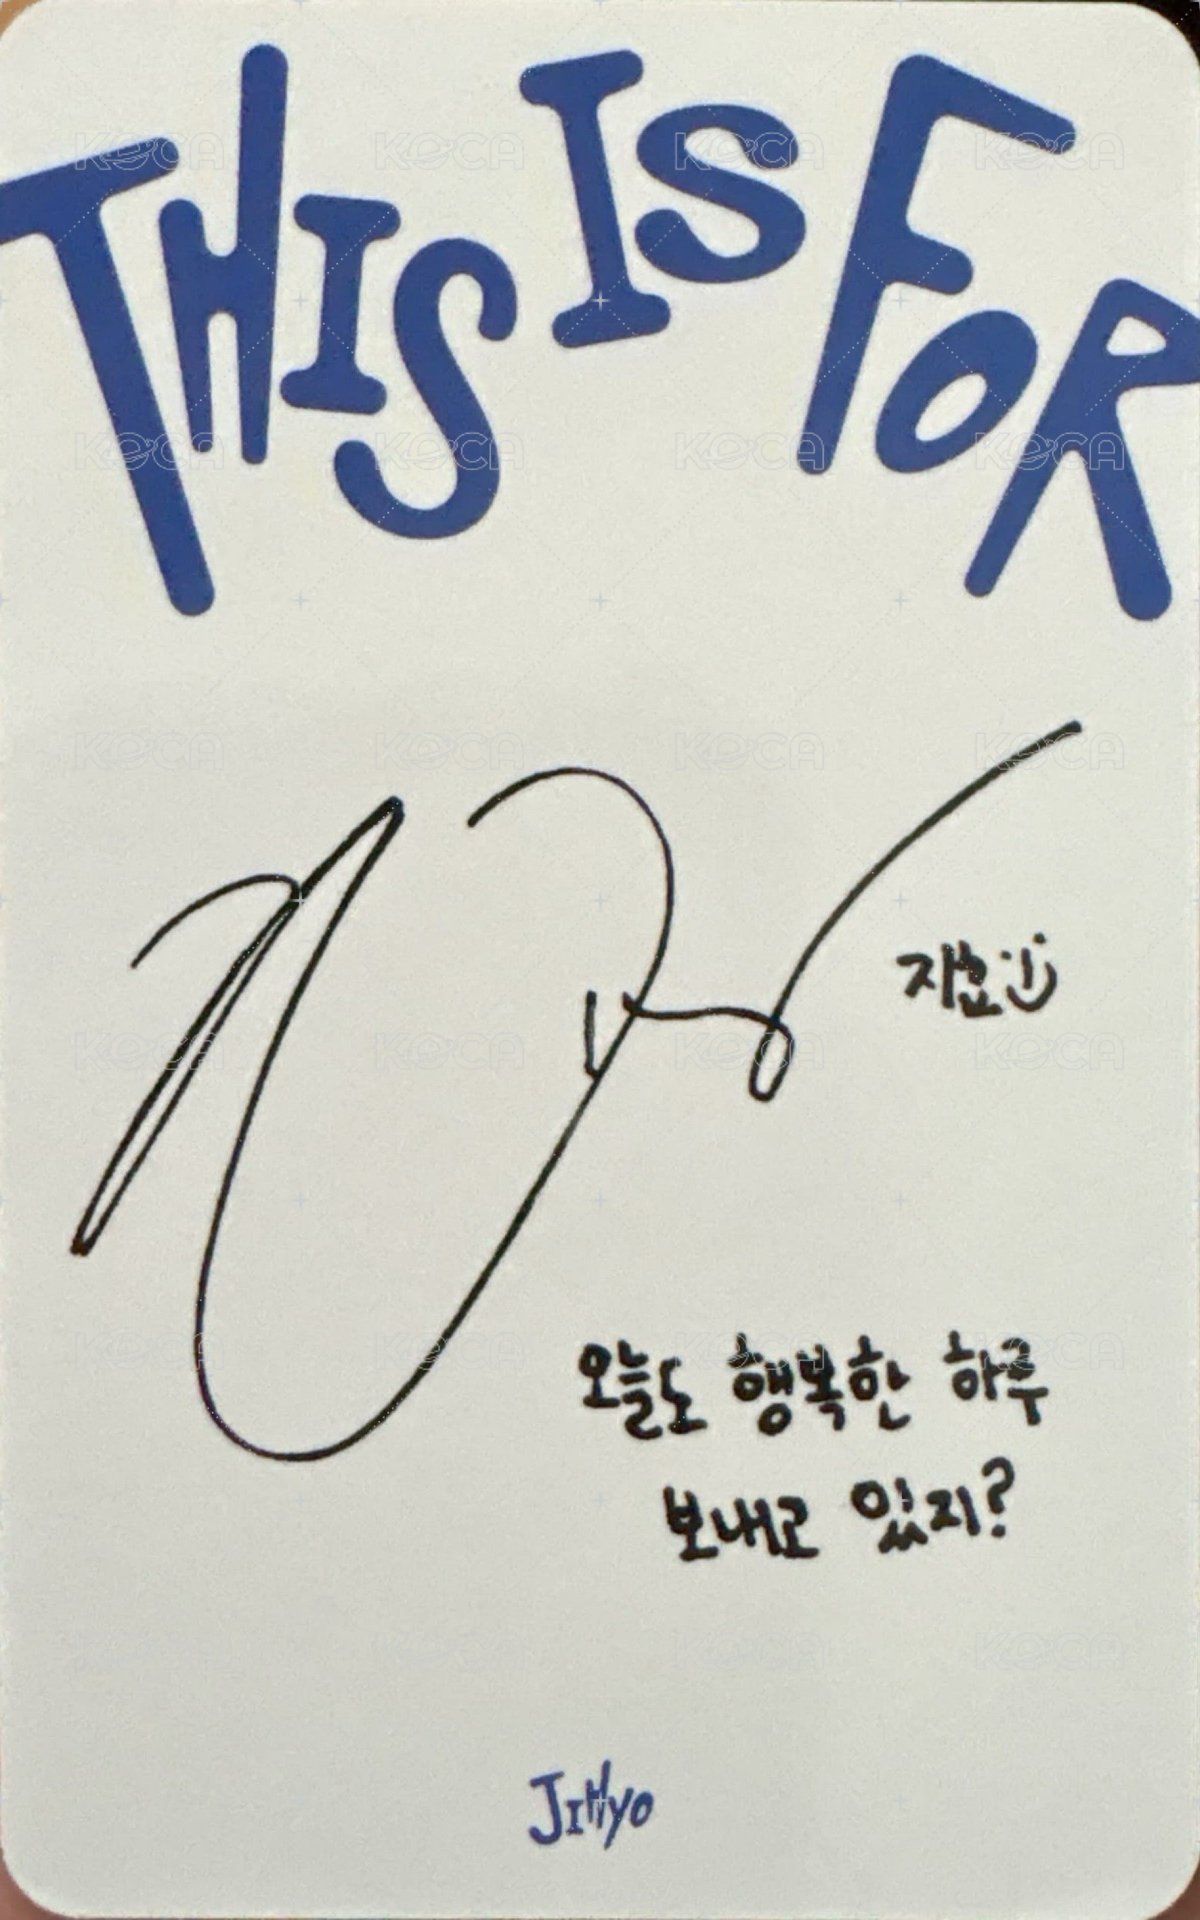 THIS IS FOR
지효
오늘도 행복한 하루
보내고 있지?
JIHYO